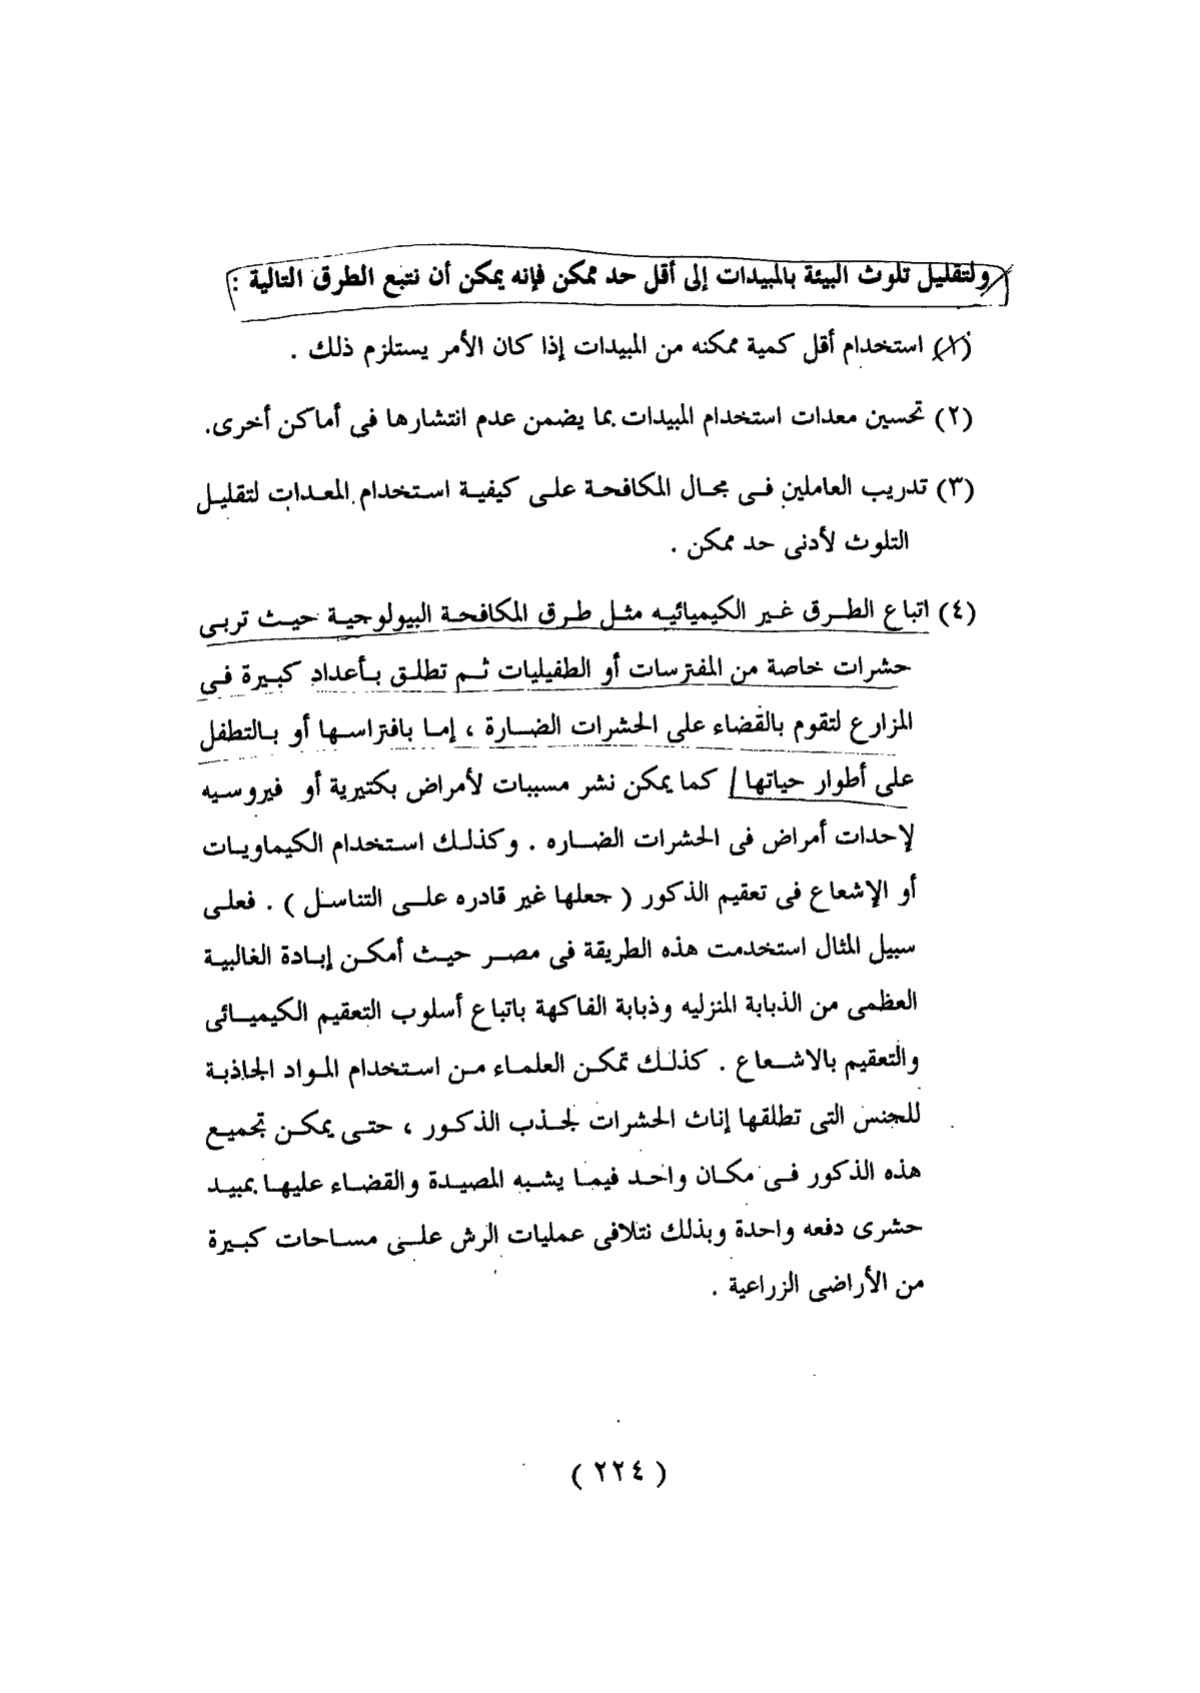 ولتقليل تلوث البيئة بالمبيدات إلى أقل حد ممكن فإنه يمكن أن نتبع الطرق التالية :
(١) استخدام أقل كمية ممكنه من المبيدات إذا كان الأمر يستلزم ذلك .
(٢) تحسين معدات استخدام المبيدات بما يضمن عدم انتشارها فى أماكن أخرى.
(٣) تدريب العاملين فى مجال المكافحة على كيفية استخدام المعدات لتقليل
التلوث لأدنى حد ممكن .
(٤) اتباع الطرق غير الكيميائيه مثل طرق المكافحة البيولوجية حيث تربى
حشرات خاصة من المفترسات أو الطفيليات ثم تطلق بأعداد كبيرة فى
المزارع لتقوم بالقضاء على الحشرات الضارة ، إما بافتراسها أو بالتطفل
على أطوار حياتها / كما يمكن نشر مسببات لأمراض بكتيرية أو فيروسيه
لإحداث أمراض فى الحشرات الضاره . وكذلك استخدام الكيماويات
أو الإشعاع فى تعقيم الذكور ( جعلها غير قادره على التناسل ) . فعلى
سبيل المثال استخدمت هذه الطريقة فى مصر حيث أمكن إبادة الغالبية
العظمى من الذبابة المنزليه وذبابة الفاكهة باتباع أسلوب التعقيم الكيميائى
والتعقيم بالاشعاع . كذلك تمكن العلماء من استخدام المواد الجاذبة
للجنس التى تطلقها إناث الحشرات لجذب الذكور ، حتى يمكن تجميع
هذه الذكور فى مكان واحد فيما يشبه المصيدة والقضاء عليها بمبيد
حشرى دفعه واحدة وبذلك نتلافى عمليات الرش على مساحات كبيرة
من الأراضى الزراعية .
( ٢٢٤ )